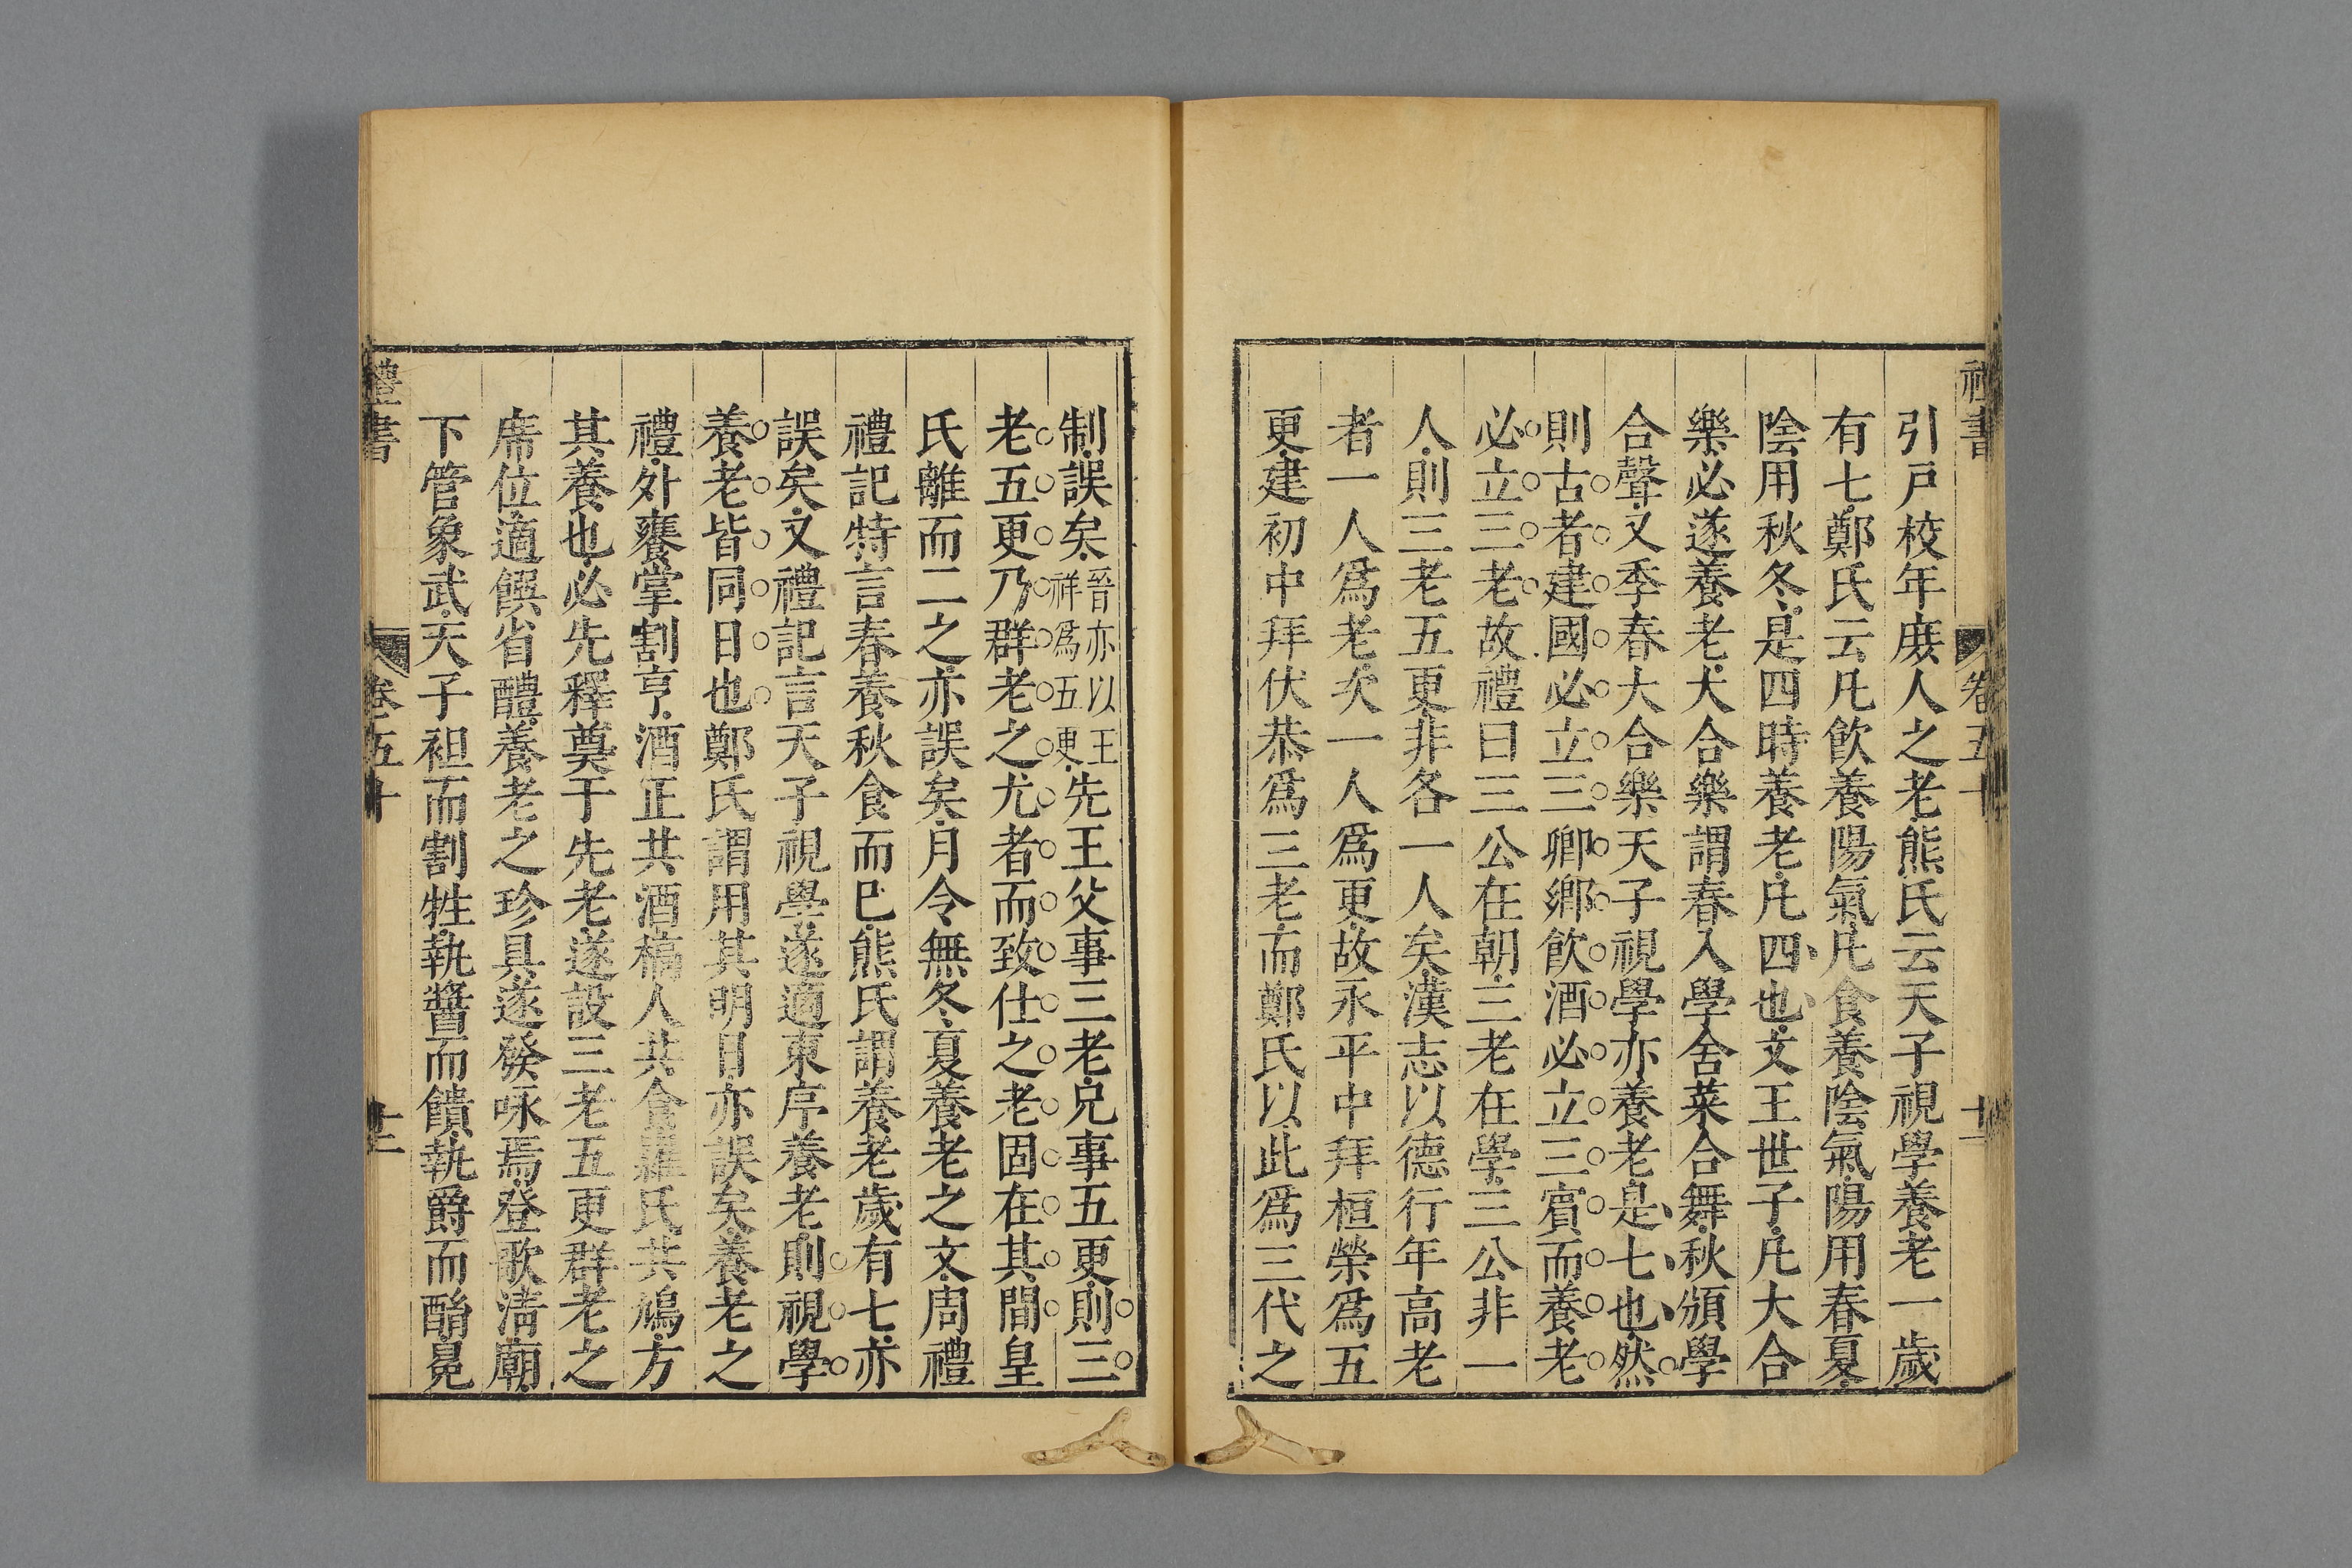 引戸校年庻人之老熊氏云天子視學養老一歲
有七鄭氏云凡飲養陽氣凡食養陰氣陽用春夏
陰用秋冬是四時養老凡四也文王世子凡大合
樂必遂養老大合樂謂春入學舍菜合舞秋頒學
合聲又季春大合樂天子視學亦養老是七也然
則古者建國必立三卿鄉飲酒必立三賔而養老
必立三老故禮曰三公在朝三老在學三公非一
人則三老五更非各一人矣漢志以德行年高老
者一人爲老次一人爲更故永平中拜桓榮爲五
更建初中拜伏恭爲三老而鄭氏以此爲三代之
卷五十
制誤矣晉亦以王祥爲五更先王父事三老兄事五更則三
老五更乃群老之尤者而致仕之老固在其間皇
氏離而二之亦誤矣月令無冬夏養老之文周禮
禮記特言春養秋食而巳熊氏謂養老歲有七亦
誤矣文禮記言天子視學遂適東序養老則視學
養老皆同日也鄭氏謂用其明日亦誤矣養老之
禮外饔掌割亨酒正共酒槁人共食羅氏共鳩方
其養也必先釋奠于先老遂設三老五更群老之
席位適饌省醴養老之珍具遂發咏焉登歌淸廟
下管象武天子袒而割牲執醬而饋執爵而酳冕
禮書
卷五十